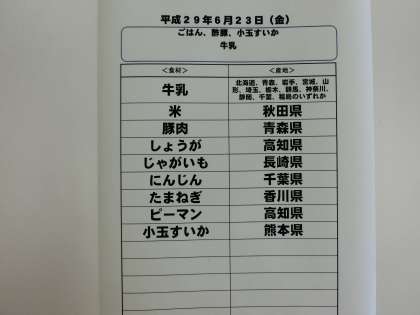 平成29年6月23日（金）
ごはん、酢豚、小玉すいか
牛乳
＜食材＞ ＜産地＞
牛乳 北海道、青森、岩手、宮城、山
形、埼玉、栃木、群馬、神奈川、
静岡、千葉、福島のいずれか
米 秋田県
豚肉 青森県
しょうが 高知県
じゃがいも 長崎県
にんじん 千葉県
たまねぎ 香川県
ピーマン 高知県
小玉すいか 熊本県